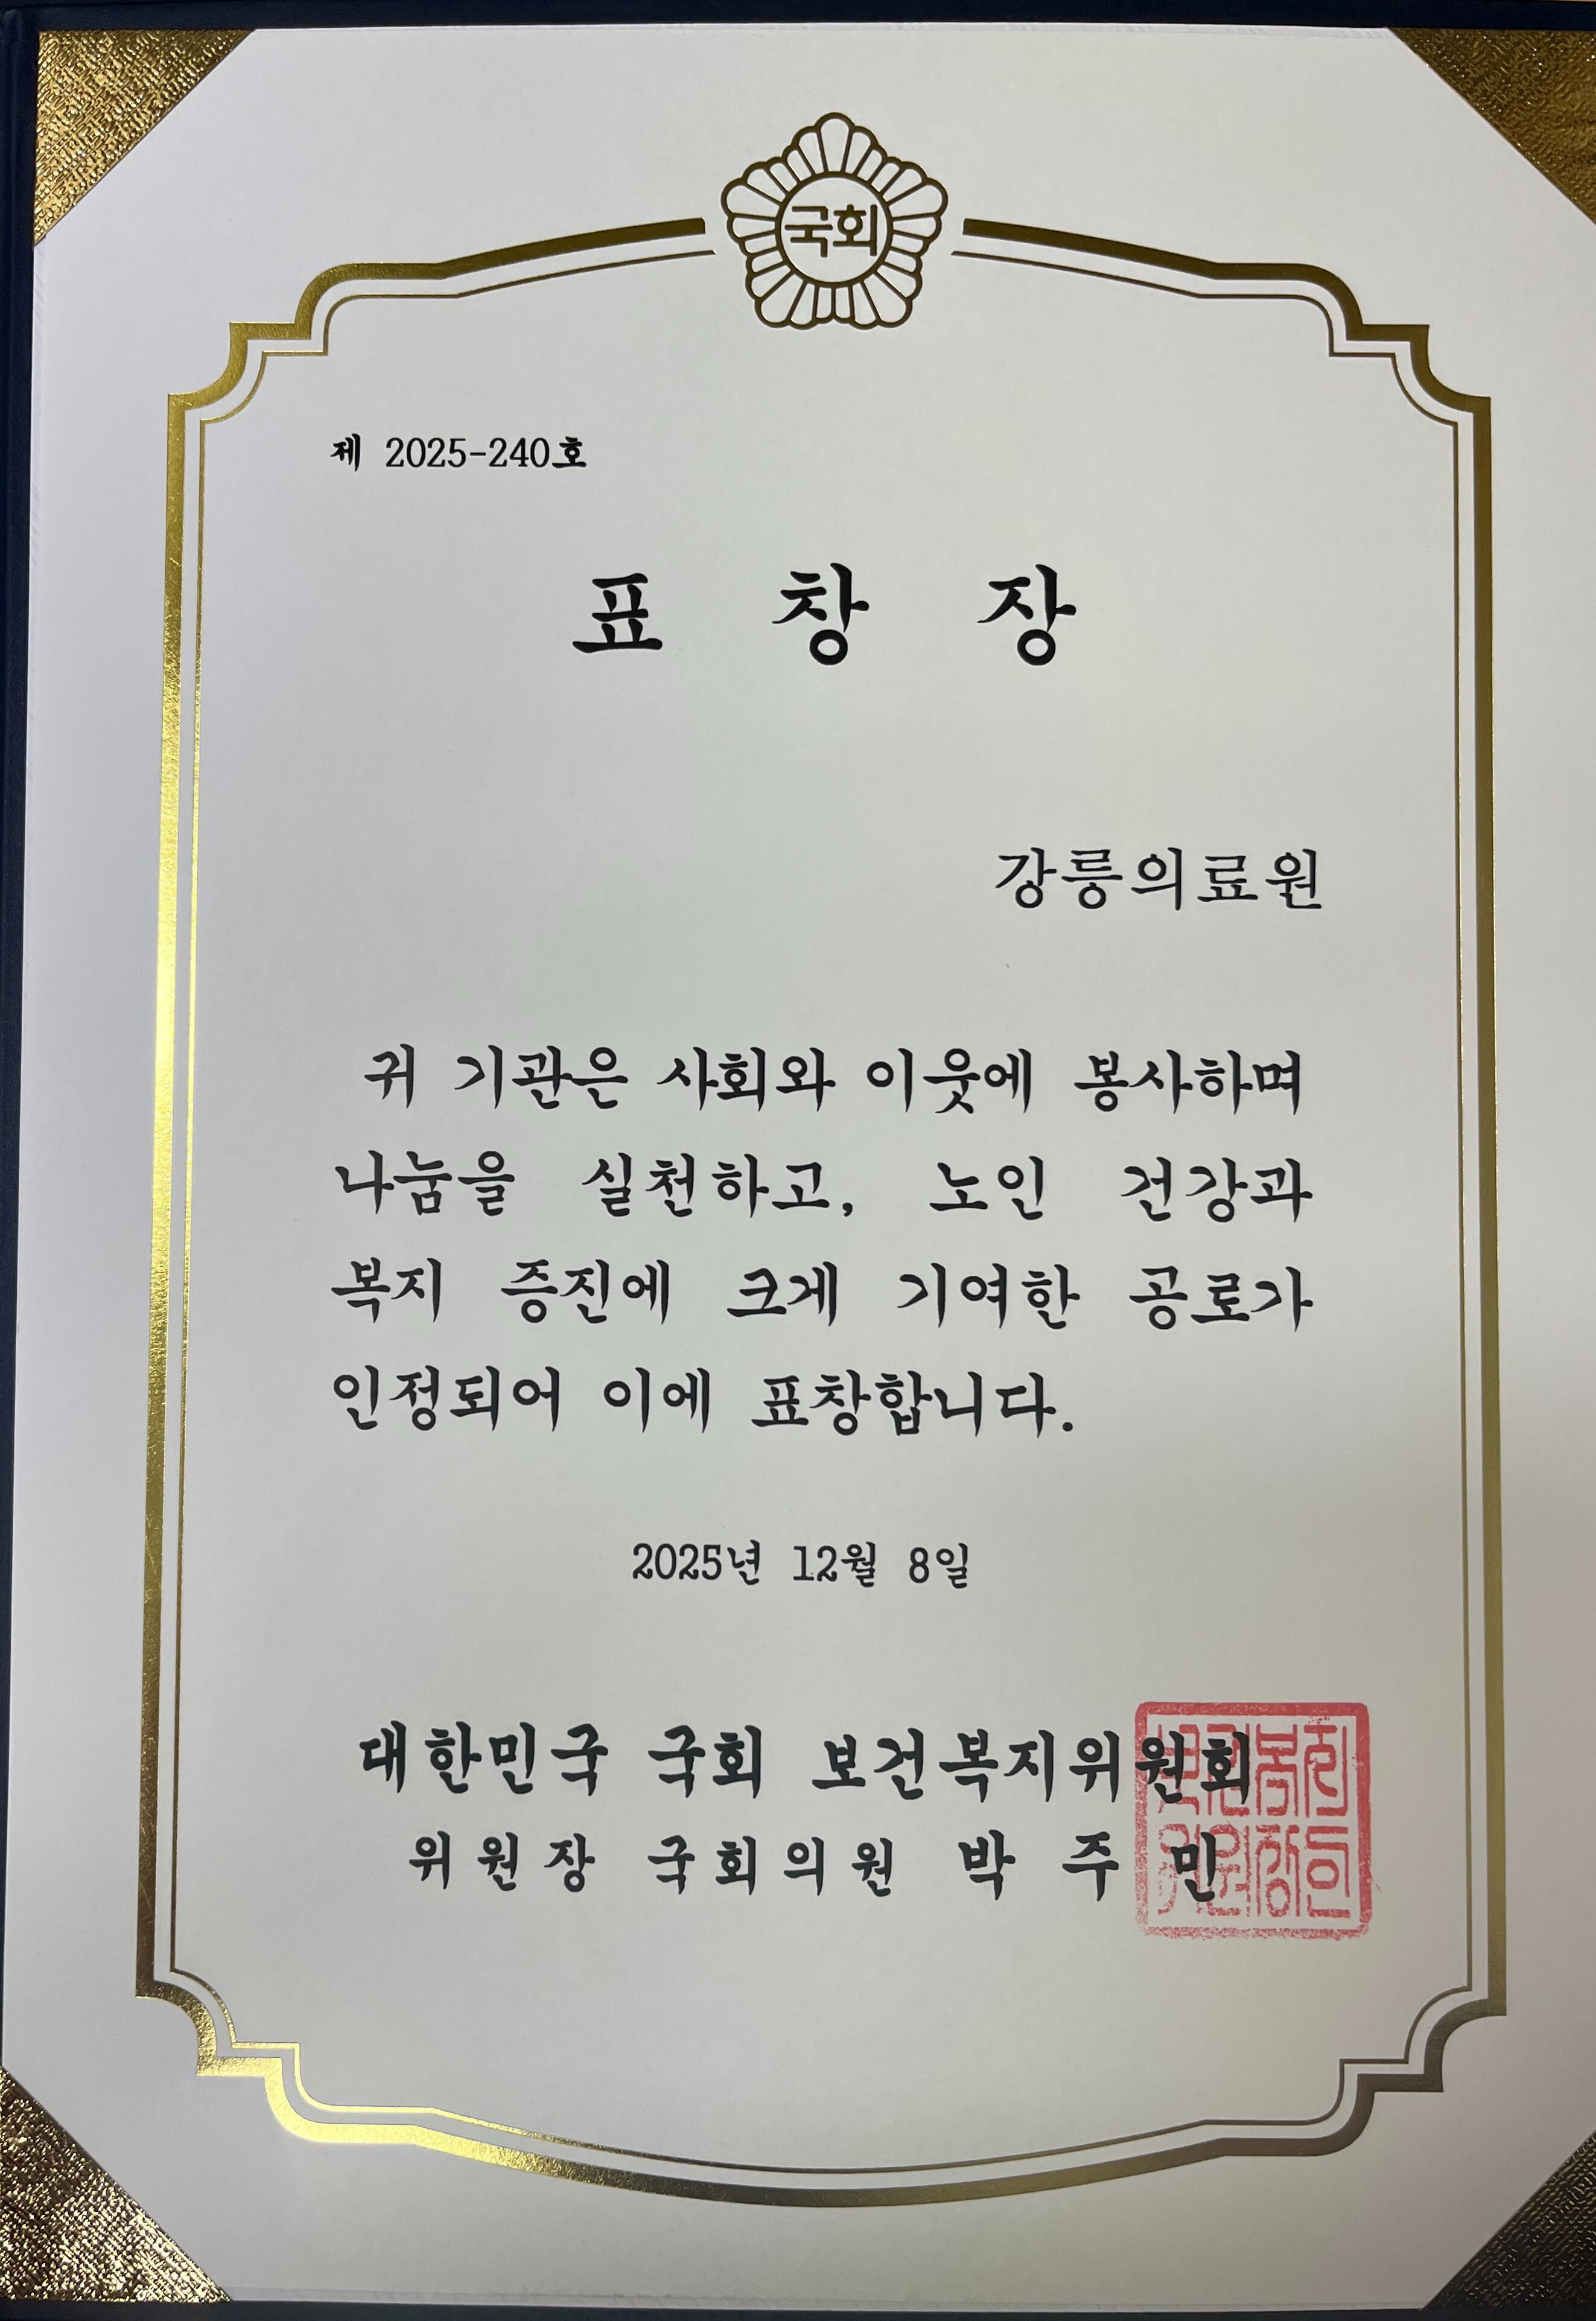 국회
제 2025-240호
표 창 장
강릉의료원
귀 기관은 사회와 이웃에 봉사하며
나눔을 실천하고, 노인 건강과
복지 증진에 크게 기여한 공로가
인정되어 이에 표창합니다.
2025년 12월 8일
대한민국 국회 보건복지위원회
위원장 국회의원 박 주 민